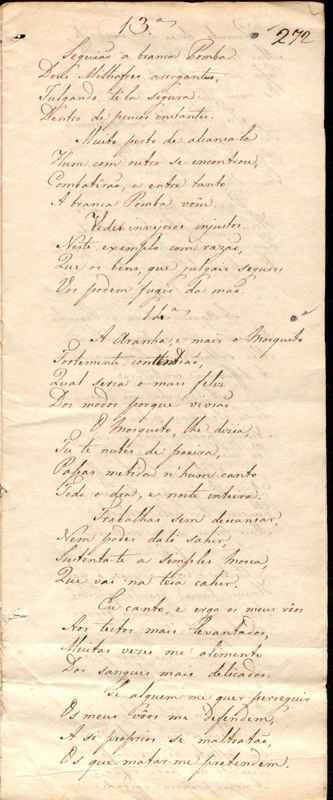 13.ª
272
Seguião a branca Pomba
Dous Milhafres arrogantes,
Julgando tê-la segura
Dentro de poucos instantes.
Muito perto de alcança-la
Hum com outro se encontrou,
Combatirão, e entre tanto
A branca Pomba vôou.
Vedes invejosos injustos
Neste exemplo com razão,
Que os bens, que julgais seguros
Vos podem fugir da mão.
14.ª
A Aranha, e mais o Mosquito
Fortemente contendião,
Qual seria o mais feliz
Dos modos porque vivião
O Mosquito, lhe dizia,
Tu te nutres de poeira,
Passas metida n'hum canto
Todo o dia, e noite inteira.
Trabalhas sem descançar,
Nem podes dali sahir,
Sustenta-te a simples mosca,
Que vai na teia cahir.
Eu canto, e ergo os meus vôos
Aos tectos mais levantados,
Muitas vezes me alimento
Dos sangues mais delicados.
Se alguem me quer perseguir
Os meus vôos me defendem,
A si proprios se maltratão,
Os que matar-me pretendem.